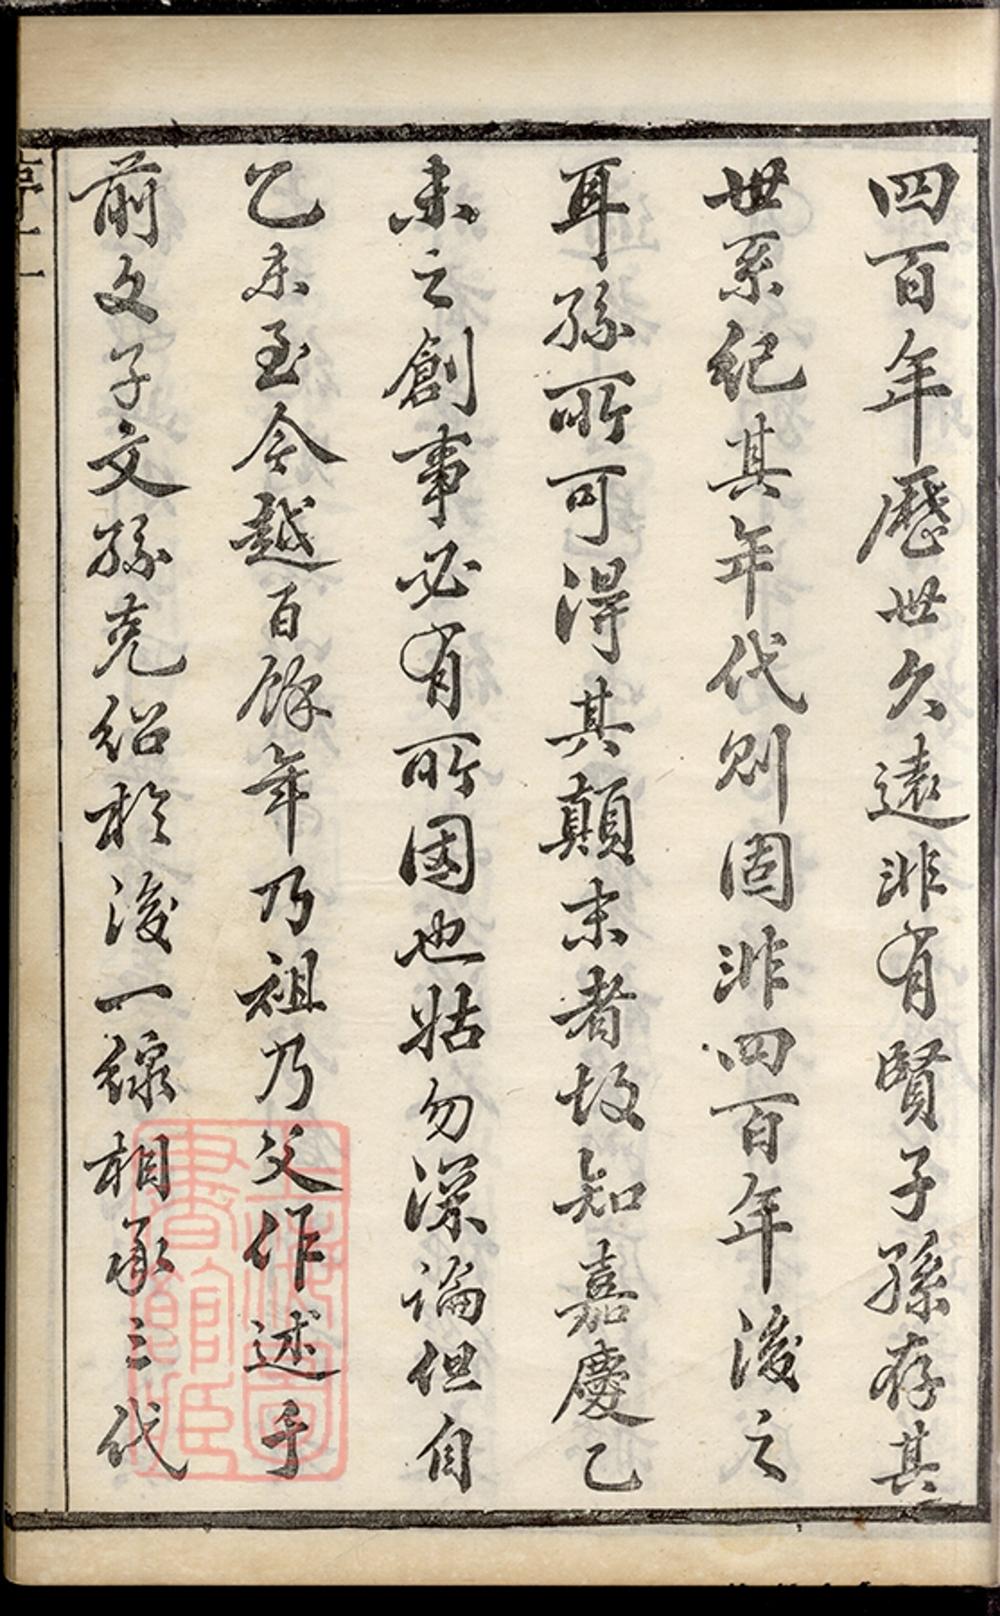 四百年歷世久遠非有賢子孫存其
世系紀其年代則固非四百年後之
耳孫所可得其顛末者故知嘉慶乙
未之創事必有所因也姑勿深論但自
乙未至今越百餘年乃祖乃父作述于
前文子文孫克紹於後一線相承三代